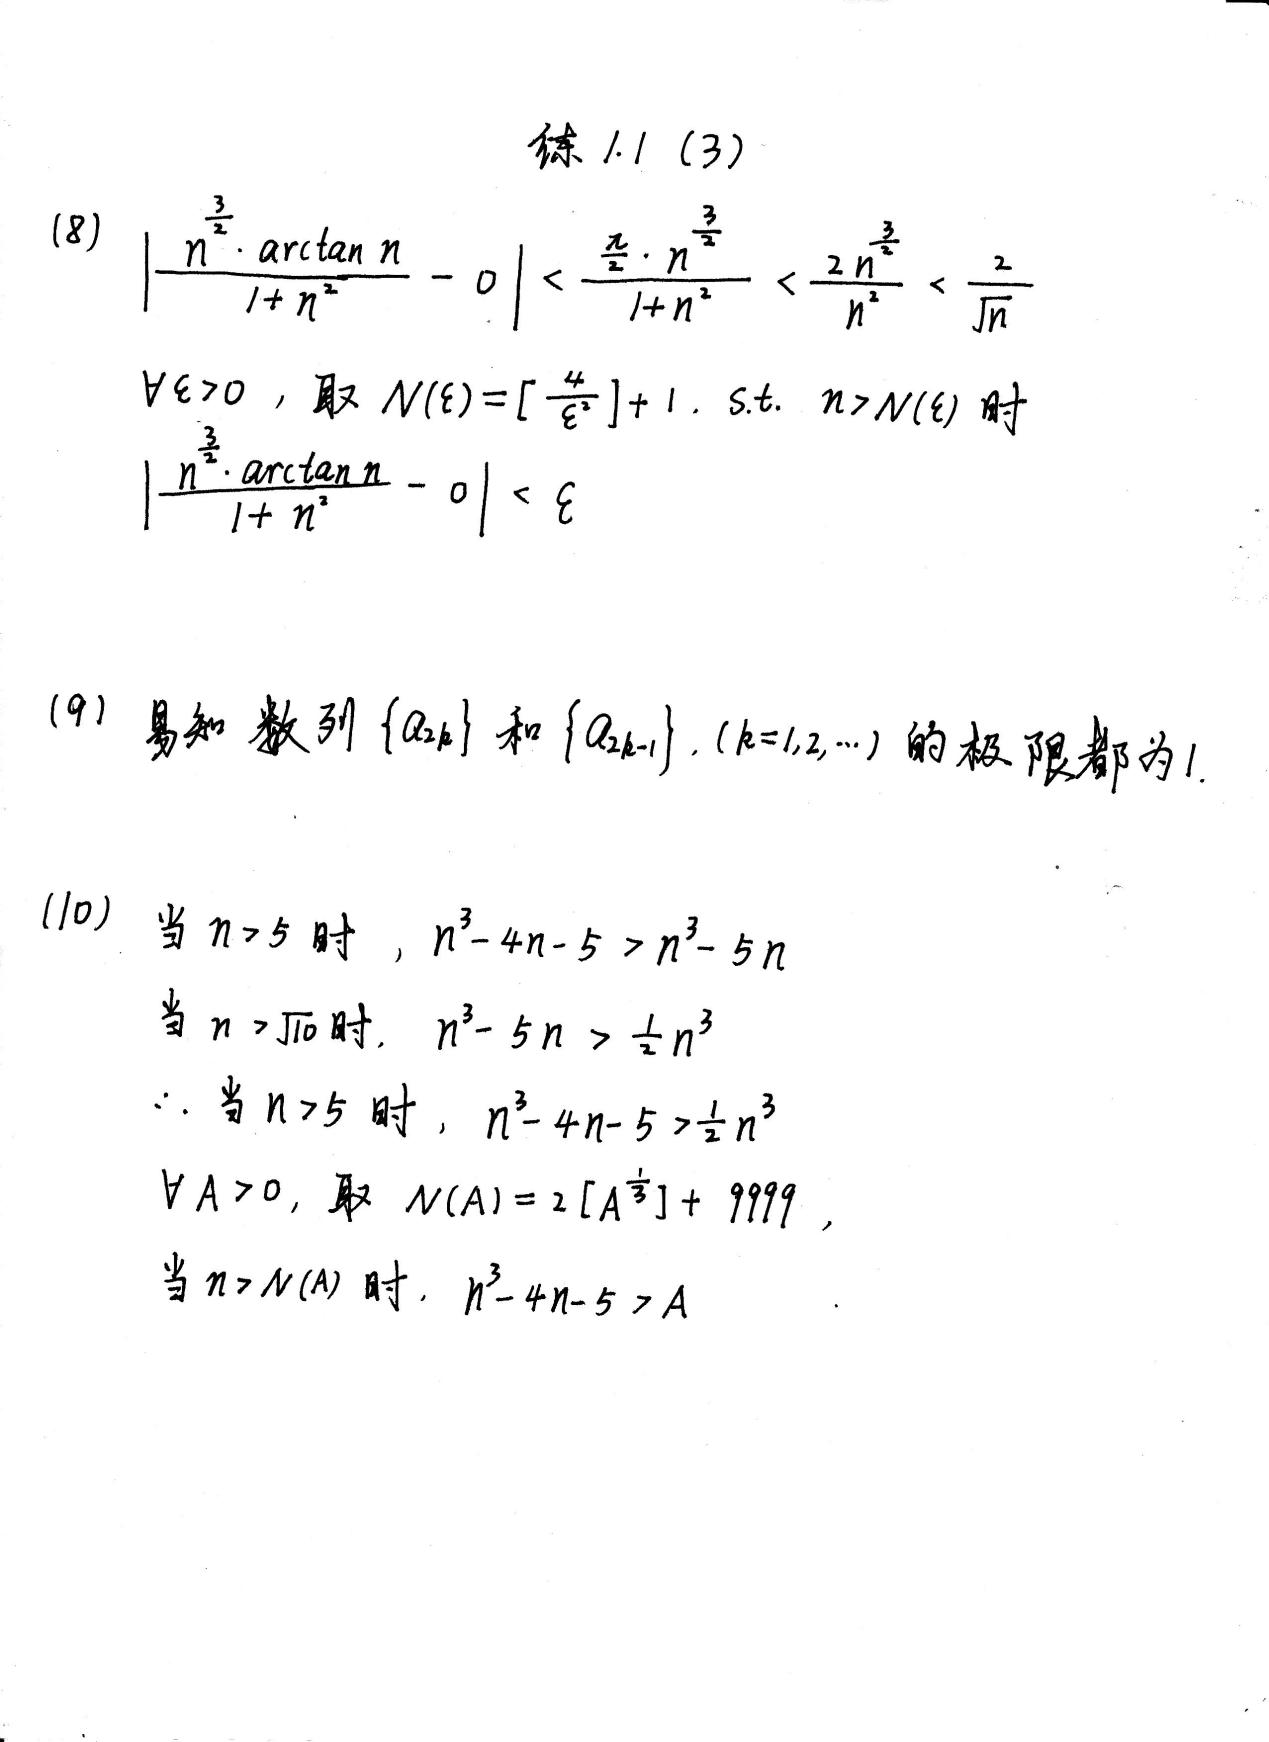 练 1.1 (3)
(8) | n^{3/2} · arctan n / (1+n²) − 0 | < (π/2 · n^{3/2}) / (1+n²) < 2n^{3/2} / n² < 2/√n
∀ε>0, 取 N(ε)=[4/ε²]+1. s.t. n>N(ε) 时
| n^{3/2} · arctan n / (1+n²) − 0 | < ε
(9) 易知 数列 {a_{2k}} 和 {a_{2k-1}}. (k=1,2,…) 的极限都为1.
(10) 当 n>5 时, n³−4n−5 > n³−5n
当 n>√10 时. n³−5n > 1/2 n³
∴ 当 n>5 时, n³−4n−5 > 1/2 n³
∀A>0, 取 N(A)=2[A^{1/3}]+9999,
当 n>N(A) 时. n³−4n−5 > A